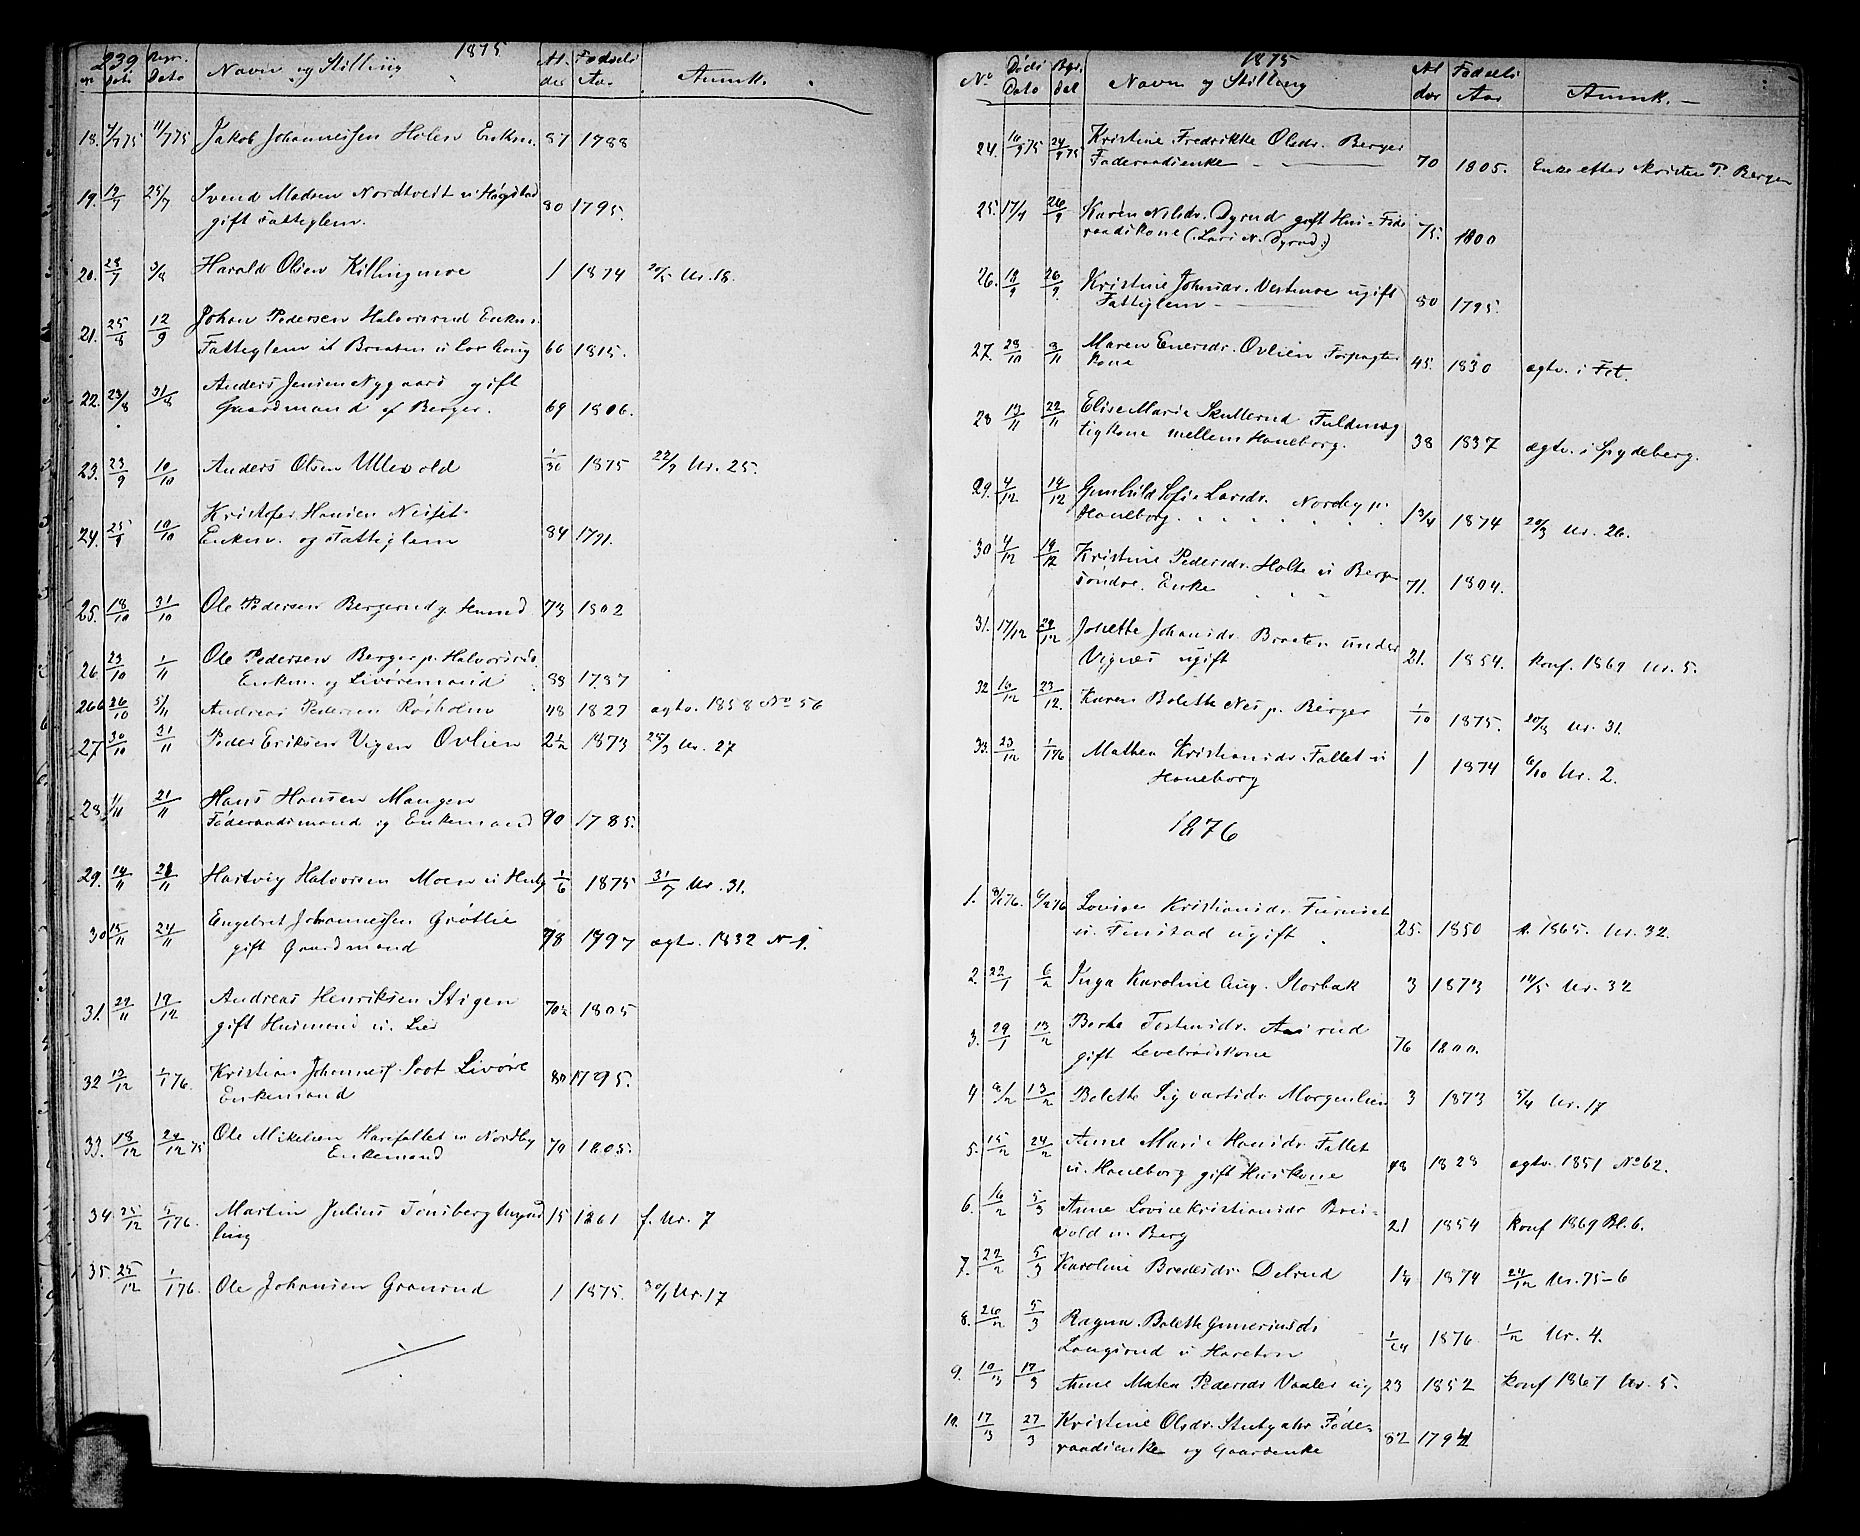 239 1875
Nr. Døds Dato Begr. Dato Navn og Stilling Al-der Fødsels Aar Anmk.
18. 4/7 75 11/7 75 Jakob Johannessen Holen Enkm. 87 1788
19. 19/7 25/7 Svend Madsen Nordtvedt u/ Høgstad 80 1795.
gift Fattiglem.
20. 28/7 Harald Olsen Killingmoe 1 1874 Nr. 18.
21. 25/8 12/9 Johan Pedersen Halvorsrud Enkm.
Fattiglem it Braaten 60 1815.
22. 23/8 31/8 Anders Jensen Nygaard gift
Gaardmand af Berger. 69 1806.
23. 23/9 10/10 Anders Olsen Ullevold 1/30 1875 22/9 Nr. 25.
24. 25/9 10/10 Kristofer Hansen Neiset
Enkm. og Fattiglem 84 1791.
25. 18/10 31/10 Ole Pedersen Bergerud g. Husmd 73 1802
26 23/10 1/11 Ole Pedersen Berger p. Halvorsrud
Enkm. og Livøremand 88 1787
26b 26/10 5/11 Andreas Pedersen Rosholm 48 1827 ægtv. 1858 No 56
27 30/10 21/11 Peder Eriksen Vigen Ovlien 2 1/2 1873 25/3 Nr. 27
28. 1/11 21/11 Hans Hansen Mangen
Føderaadsmand og Enkemand 90 1785.
29. 14/11 21/11 Hartvig Halvorsen Moen 1/6 1875 31/7 Nr. 31.
30 15/11 24/11 Engebret Johannessen Grøtlie
gift Gaardmand 78 1797 ægtv. 1832 N 9.
31. 29/11 19/12 Andreas Henriksen Stigen
gift Husmand u. Lier 70 1/2 1805
32 13/12 1/1 76. Kristian Johannesf. Soot Livøre
Enkemand 80 1795.
33. 18/12 29/12 75 Ole Mikelsen Harefallet u Nordby
Enkemand 70 1805.
34. 25/12 5/1 76. Martin Julius Tønsberg Yngd 15 1861 f. Nr. 7
ling
35. 25/12 1/1 76. Ole Johansen Granrud 1 1875. 30/1 Nr. 17
1875
No Døds Dato Bgr. Dat Navn og Stilling Al der Fødsels Aar Anmk.
24. 16/9 75 24/9 75 Kristine Fredrikke Olsdr. Berger
Føderaadsenke 70 1805. Enke efter Kristen P. Berger
25. 17/9 26/9 Karen Nilsdr. Dyrud gift Hus- Føde
raadskone (Lars N. Dyrud) 75. 1800
26. 18/9 26/9. Kristine Johnsdr. Vestmoe ugift
Fattiglem 80 1795.
27. 23/10 3/11 Maren Enersdr. Ovlien Forpagter
kone 45. 1830 ægtv. i Fet.
28 13/11 22/11 Elise Marie Skullerud Fuldmæg
tigkone mellem Haneborg. 38 1837 ægtv. i Spydeberg.
29. 4/12 14/12 Gunhild Sofie Larsdr. Nordby p.
Haneborg. 1 3/4 1874 20/3 Nr. 26.
30 4/12 19/12 Kristine Pedersdr. Holte u Berger
søndre. Enke 71. 1804.
31. 17/12 29/12 Johette Johansdr. Braaten under
Vignæs ugift 21. 1854. konf. 1869 Nr. 5.
32 16/12 23/12. Karen Bolette Nes p. Berger 1/10 1875. Nr. 31.
33. 23/12 1/1 76 Mathea Kristiansdr. Fallet u
Haneborg 1 1874 6/10 Nr. 2.
1876
1. 8/1 76. 6/2 76 Lovise Kristiansdr. Furuset
u. Finstad ugift 25. 1850 k. 1865. Nr. 32.
2. 22/1 6/2 Inga Karoline Aug. Storbak 3 1873 14/5 Nr. 32
3. 29/1 13/2 Berte Tostensdr. Aasrud
gift Levebrødskone 76 1800.
4 8/2 13/2 Bolette Sigvartsdr. Morgenlien 3 1873 5/4 Nr. 17
5. 15/2 24/2 Anne Marie Hansdr. Fallet
u. Haneborg gift Huskone 48 1828 ægtv. 1851 No 62.
6. 16/2 5/3 Anne Lovise Kristiansdr. Brei-
vold u. Berg 21 1854 konf 1869 Bl. 6.
7. 22/2 5/3 Karoline Bredesdr. Delrud 1 1/4 1874 24/12 Nr. 75-6
8. 26/2 5/3 Ragna Bolette Gunneriusdr
Langsrud u Hareton 1/24 1876 1/2 Nr. 4.
9. 10/3 17/3 Anne Matea Pedersdr Vaaler ug 23 1852 konf 1867 Nr. 5.
10. 17/3 27/3 Kristine Olsdr. Føde-
raadsenke og Gaardenke 82 1794